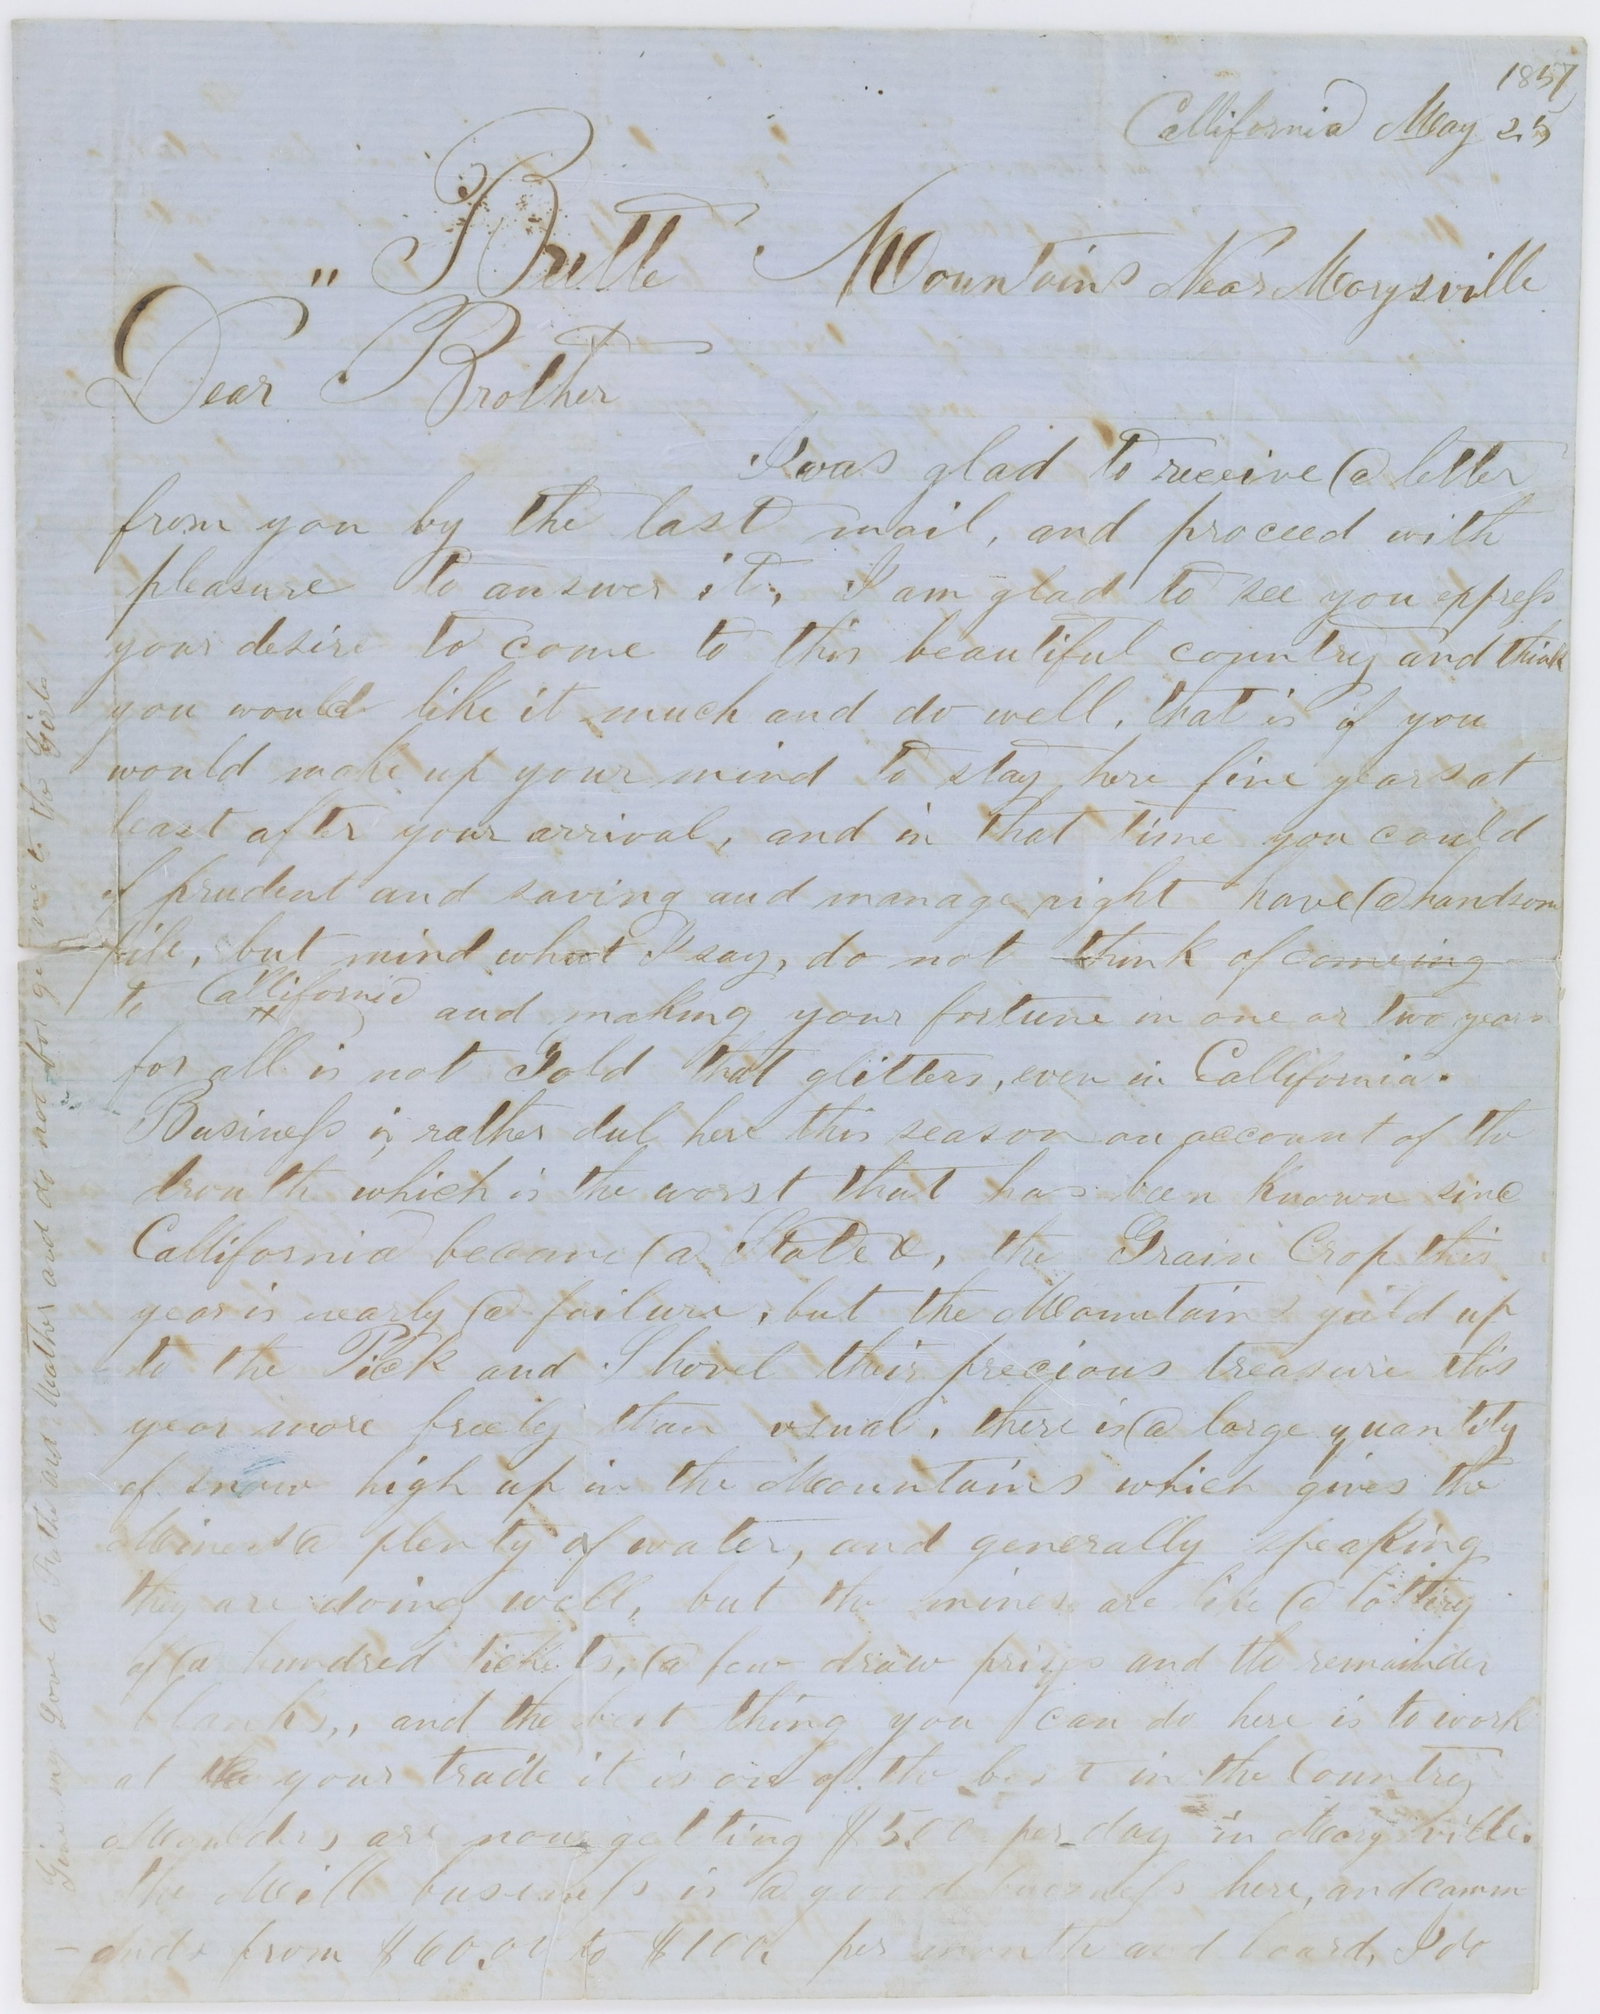 1857
Callifornia May 25
" Butte Mountains Near Marysville
Dear Brother
I was glad to receive a letter
from you by the last mail, and proceed with
pleasure to answer it, I am glad to see you express
your desire to come to this beautiful country and think
you would like it much and do well, that is if you
would make up your mind to stay here five years at
least after your arrival, and in that time you could
if prudent and saving and manage right have a handsom
pile, but mind what I say, do not think of comeing
to Callifornia and making your fortune in one or two years
for all is not Gold that glitters, even in Callifornia.
Business is rather dul here this season on account of the
drouth which is the worst that has been known sinc
Callifornia became a State &, the Grain Crop this
year is nearly a failure, but the Mountains yeild up
to the Pick and Shovel their precious treasure this
year more freely than usual, there is a large quantity
of snow high up in the Mountains which gives the
Miners a plenty of water, and generally speaking
they are doing well, but the mines are like a lottery
of a hundred tickets, a few draw prizes and the remainder
blanks,, and the best thing you can do here is to work
at your trade it is one of the best in the Country
Moulders are now getting $5.00 per day in Marysville.
The Mill business is a good business here, and comm
ands from $60.00 to $100. per month and board, I do
Give my Love to Father and Mother and do not forget me to the Girls